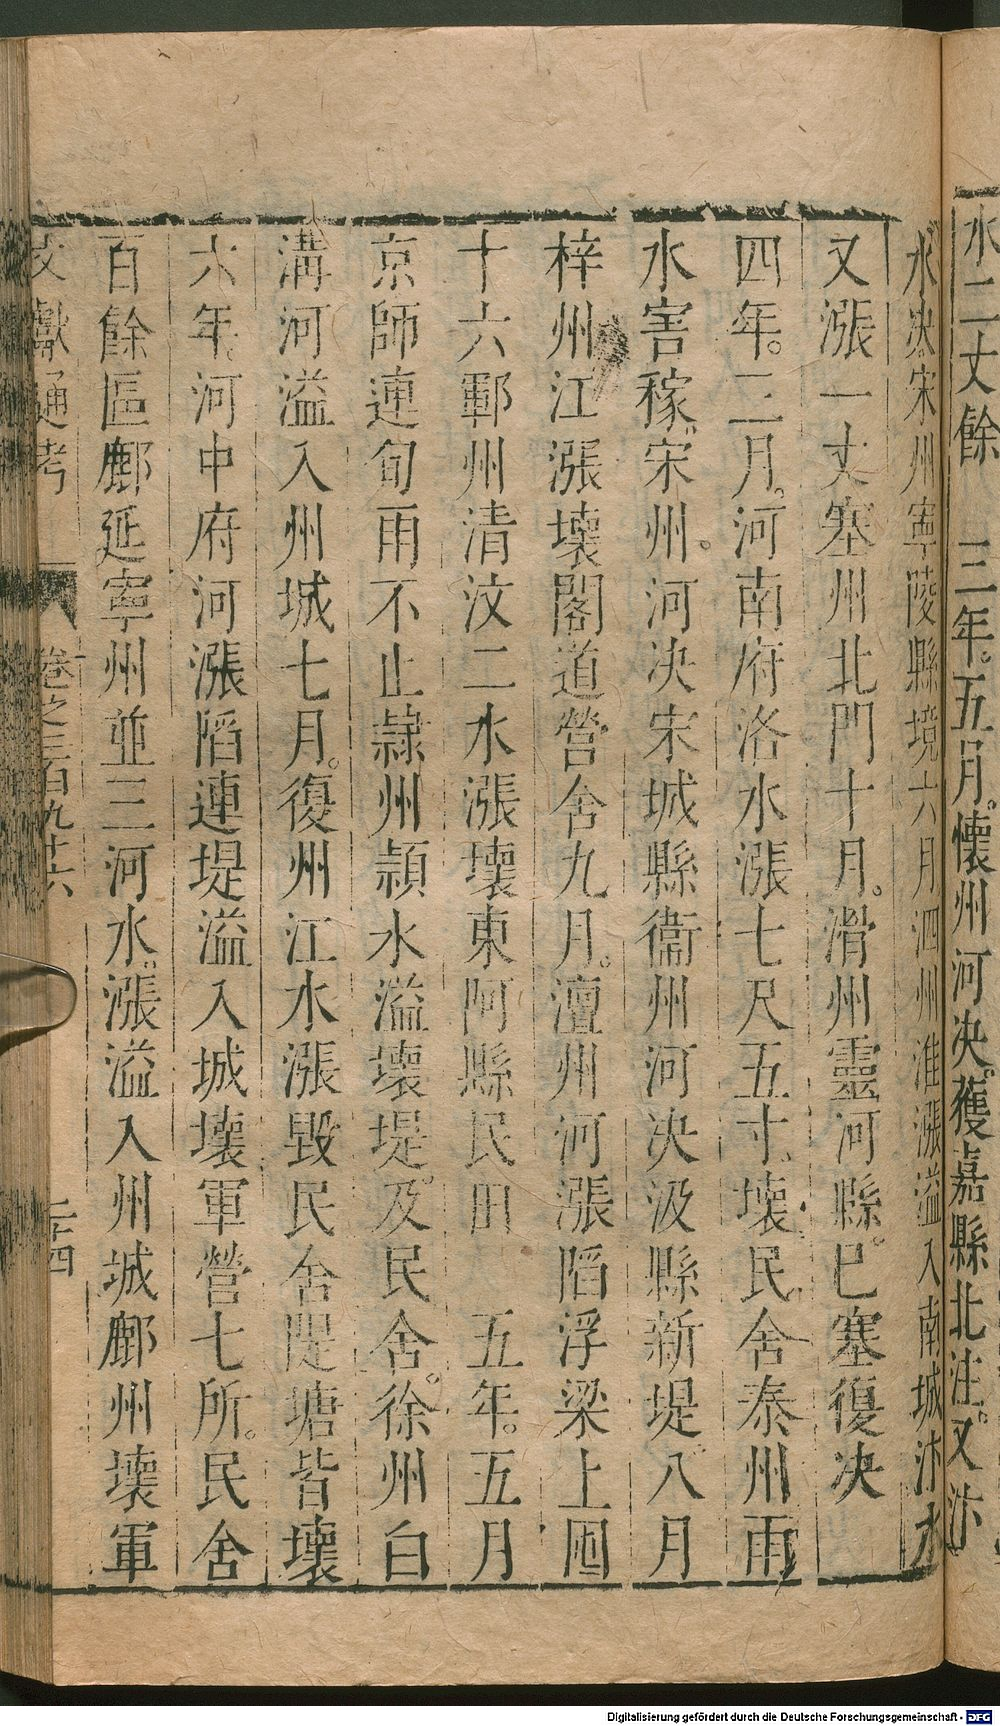 水二丈餘　三年。五月。懷州河決。獲嘉縣北注。又汴
水决宋州寧陵縣境六月泗州淮漲溢入南城汴水
又漲一丈塞州北門十月。滑州靈河縣。已塞復决
四年。二月。河南府洛水漲七尺五寸壞民舍泰州雨
水害稼宋州。河决宋城縣衞州河决汲縣新堤八月
梓州江漲壞閣道營舍九月。澶州河漲陷浮梁上囤
十六鄆州清汶二水漲壞東阿縣民田　五年。五月
京師連旬雨不止隷州潁水溢壞堤及民舍。徐州白
溝河溢入州城七月。復州江水漲毀民舍隄塘皆壞
六年。河中府河漲陷連堤溢入城壞軍營七所。民舍
百餘區鄜延寧州並三河水漲溢入州城鄜州壞軍
文獻通考　卷之三百九十六　二十四
Digitalisierung gefördert durch die Deutsche Forschungsgemeinschaft - DFG